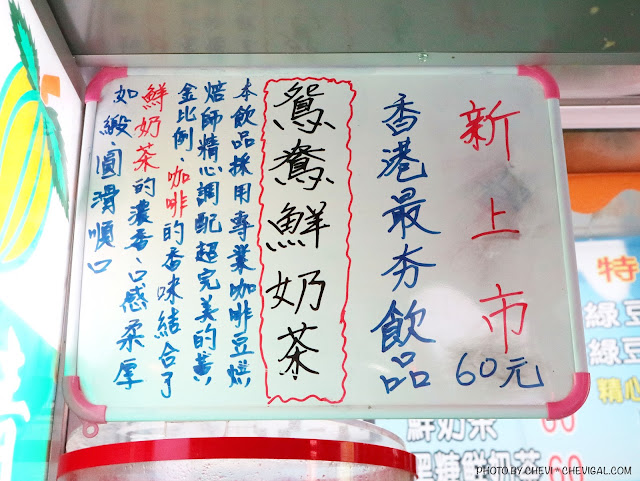 新上市
60元
香港最夯飲品
鴛鴦鮮奶茶
本飲品採用專業咖啡豆烘
焙師精心調配超完美的黃
金比例、咖啡的香味結合了
鮮奶茶的濃香、口感柔厚
如緞、圓滑順口
特
綠豆
綠豆
精心
鮮奶茶 60
黑糖鮮奶茶 60
PHOTO BY CHEVI * CHEVIGAL.COM